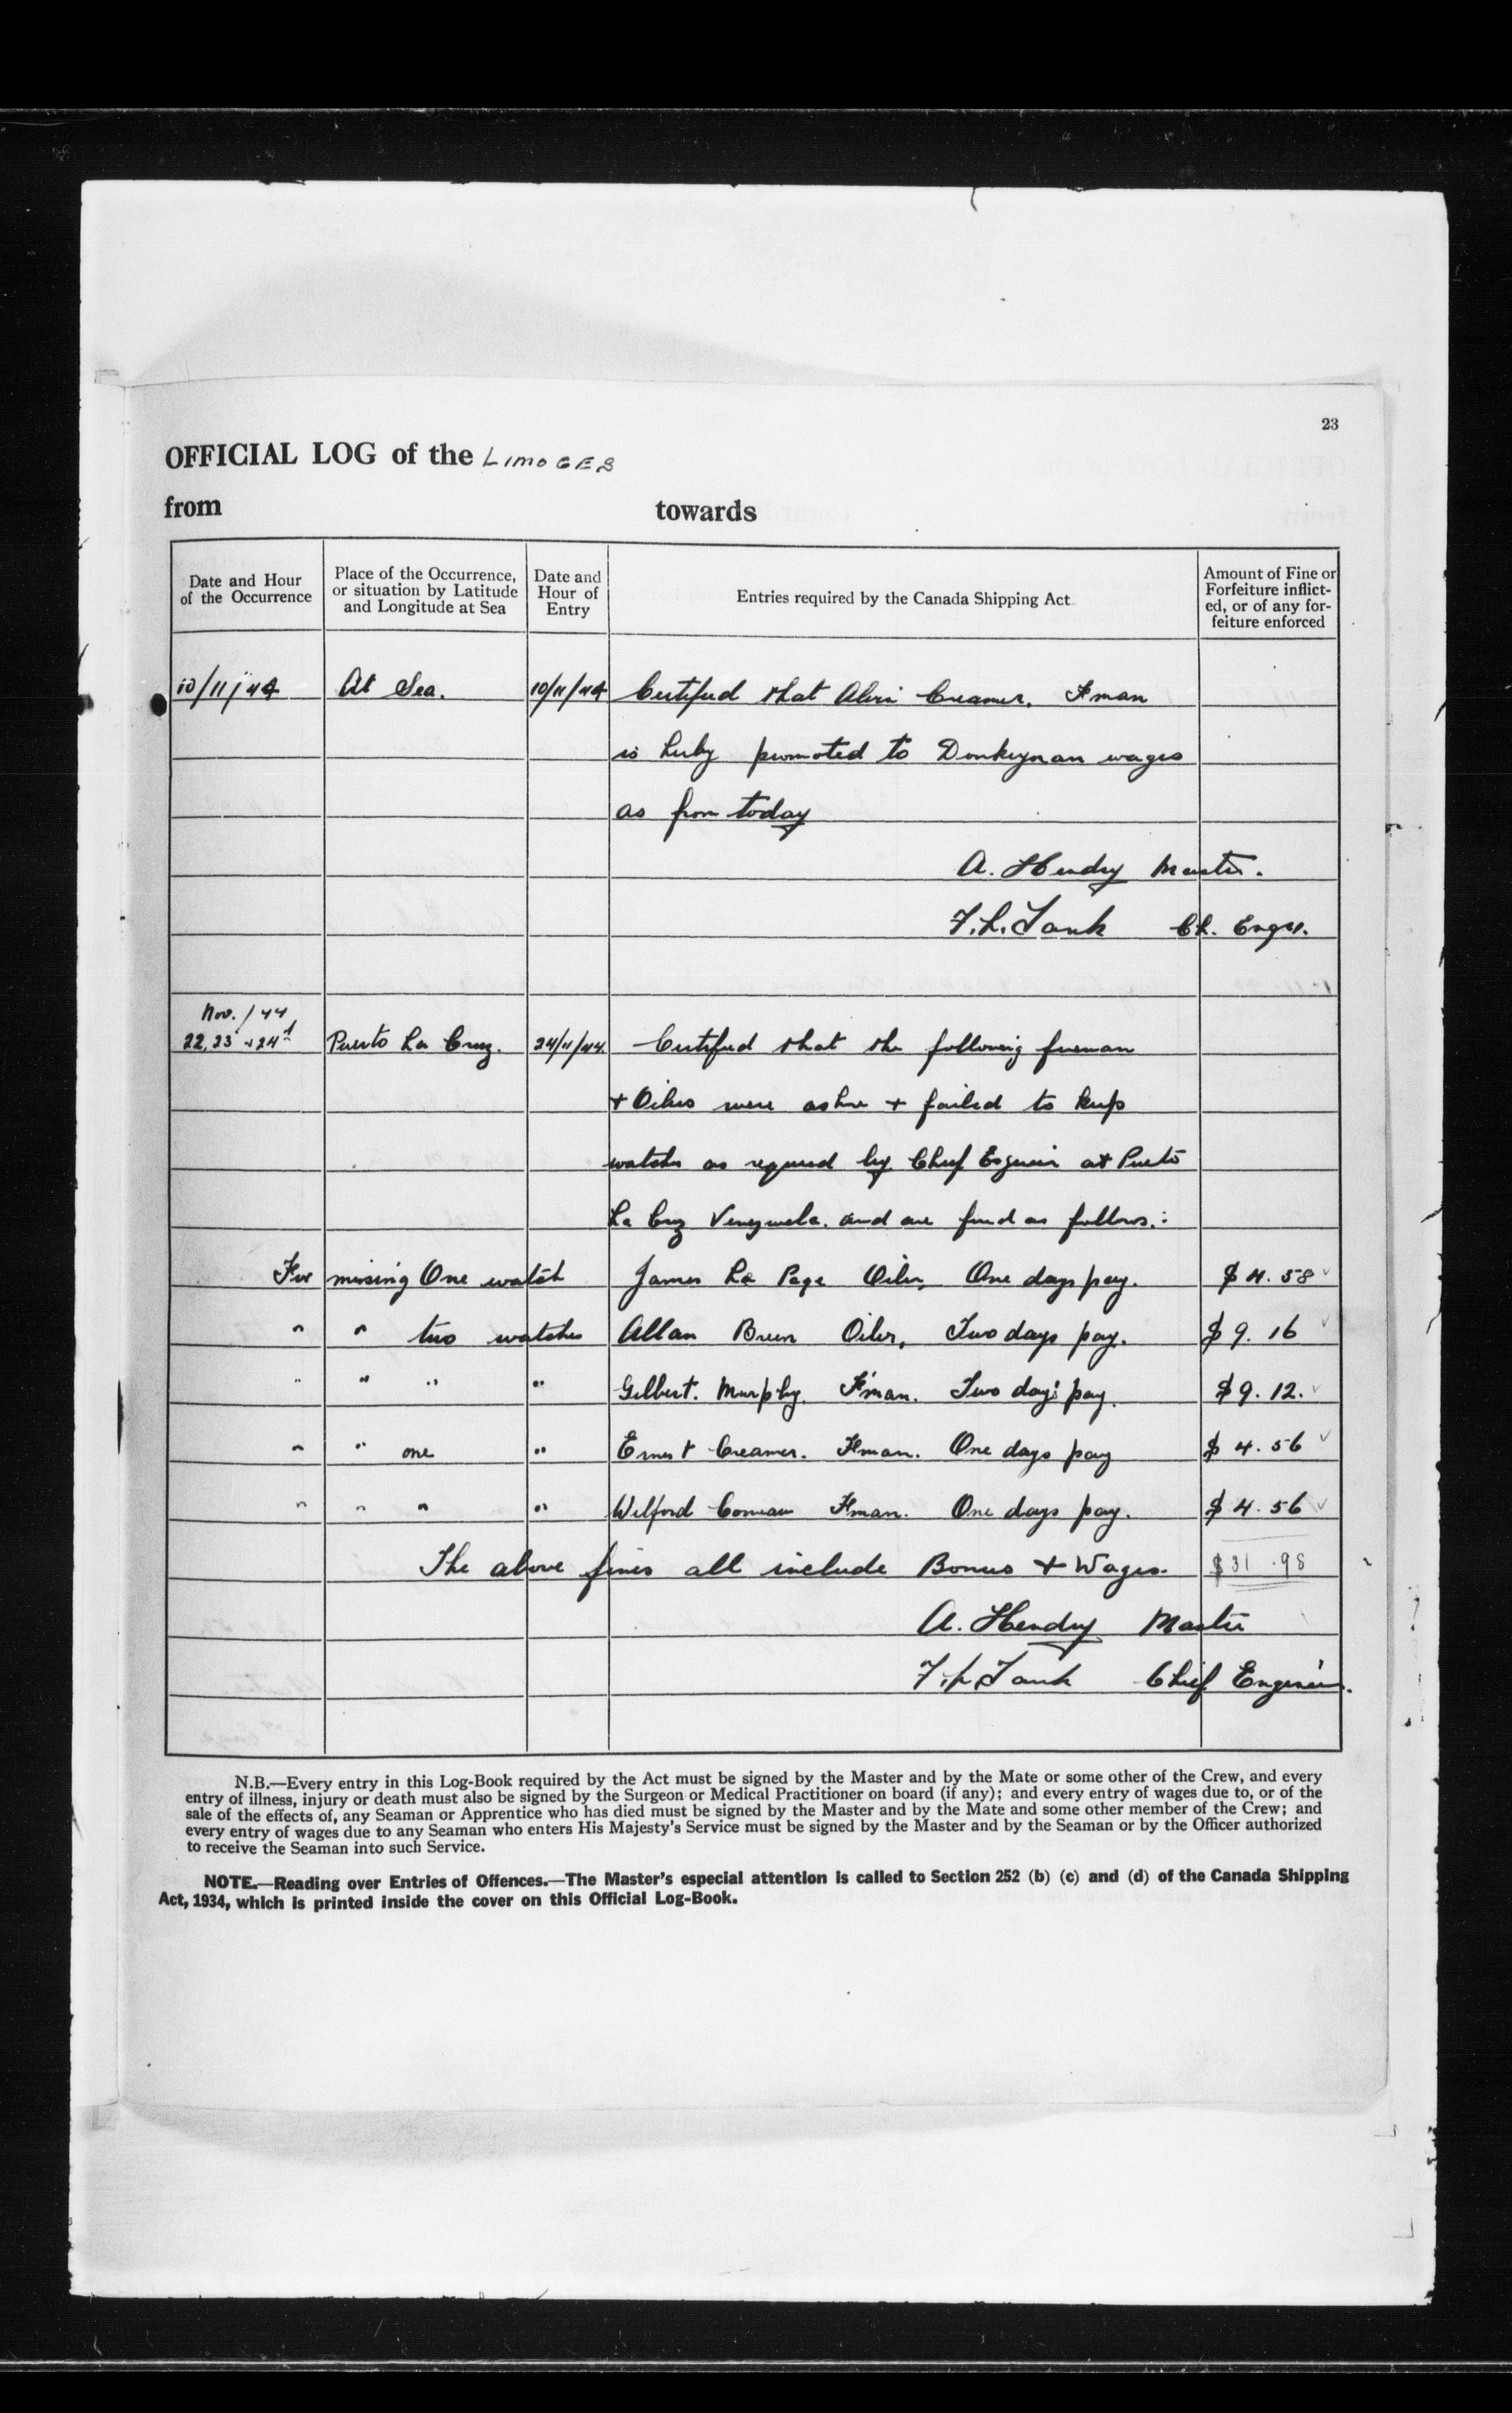 23
OFFICIAL LOG of the LIMOGES
from towards
Date and Hour of the Occurrence
Place of the Occurrence, or situation by Latitude and Longitude at Sea
Date and Hour of Entry
Entries required by the Canada Shipping Act
Amount of Fine or Forfeiture inflicted, or of any forfeiture enforced
10/11/44 At Sea. 10/11/44 Certified that Alvin Creamer. F'man
is herby promoted to Donkeyman wages
as from today
A. Hendry Master.
F.L. Tank Ch. Engr.
Nov. / 44
22, 23 + 24th Puerto La Cruz. 24/11/44. Certified that the following fireman
+ Oilers were ashore + failed to keep
watches as required by Chief Engineer at Puerto
La Cruz Venezuela. and are fined as follows.:
For missing One watch James La Page Oiler, One days pay. $ 4. 58
" " two watches Allan Oiler, Two days pay. $ 9. 16
" " " " Gilbert. Murphy. F'man. Two day's pay. $ 9. 12.
" " one " Ernest Creamer. F'man. One days pay $ 4. 56
" " " " Wilford Comeau F'man. One days pay. $ 4. 56
The above fines all include Bonus + Wages. $31.98
A. Hendry Master
F.L. Tank Chief Engineer.
N.B.—Every entry in this Log-Book required by the Act must be signed by the Master and by the Mate or some other of the Crew, and every
entry of illness, injury or death must also be signed by the Surgeon or Medical Practitioner on board (if any); and every entry of wages due to, or of the
sale of the effects of, any Seaman or Apprentice who has died must be signed by the Master and by the Mate and some other member of the Crew; and
every entry of wages due to any Seaman who enters His Majesty's Service must be signed by the Master and by the Seaman or by the Officer authorized
to receive the Seaman into such Service.
NOTE.—Reading over Entries of Offences.—The Master's especial attention is called to Section 252 (b) (c) and (d) of the Canada Shipping
Act, 1934, which is printed inside the cover on this Official Log-Book.